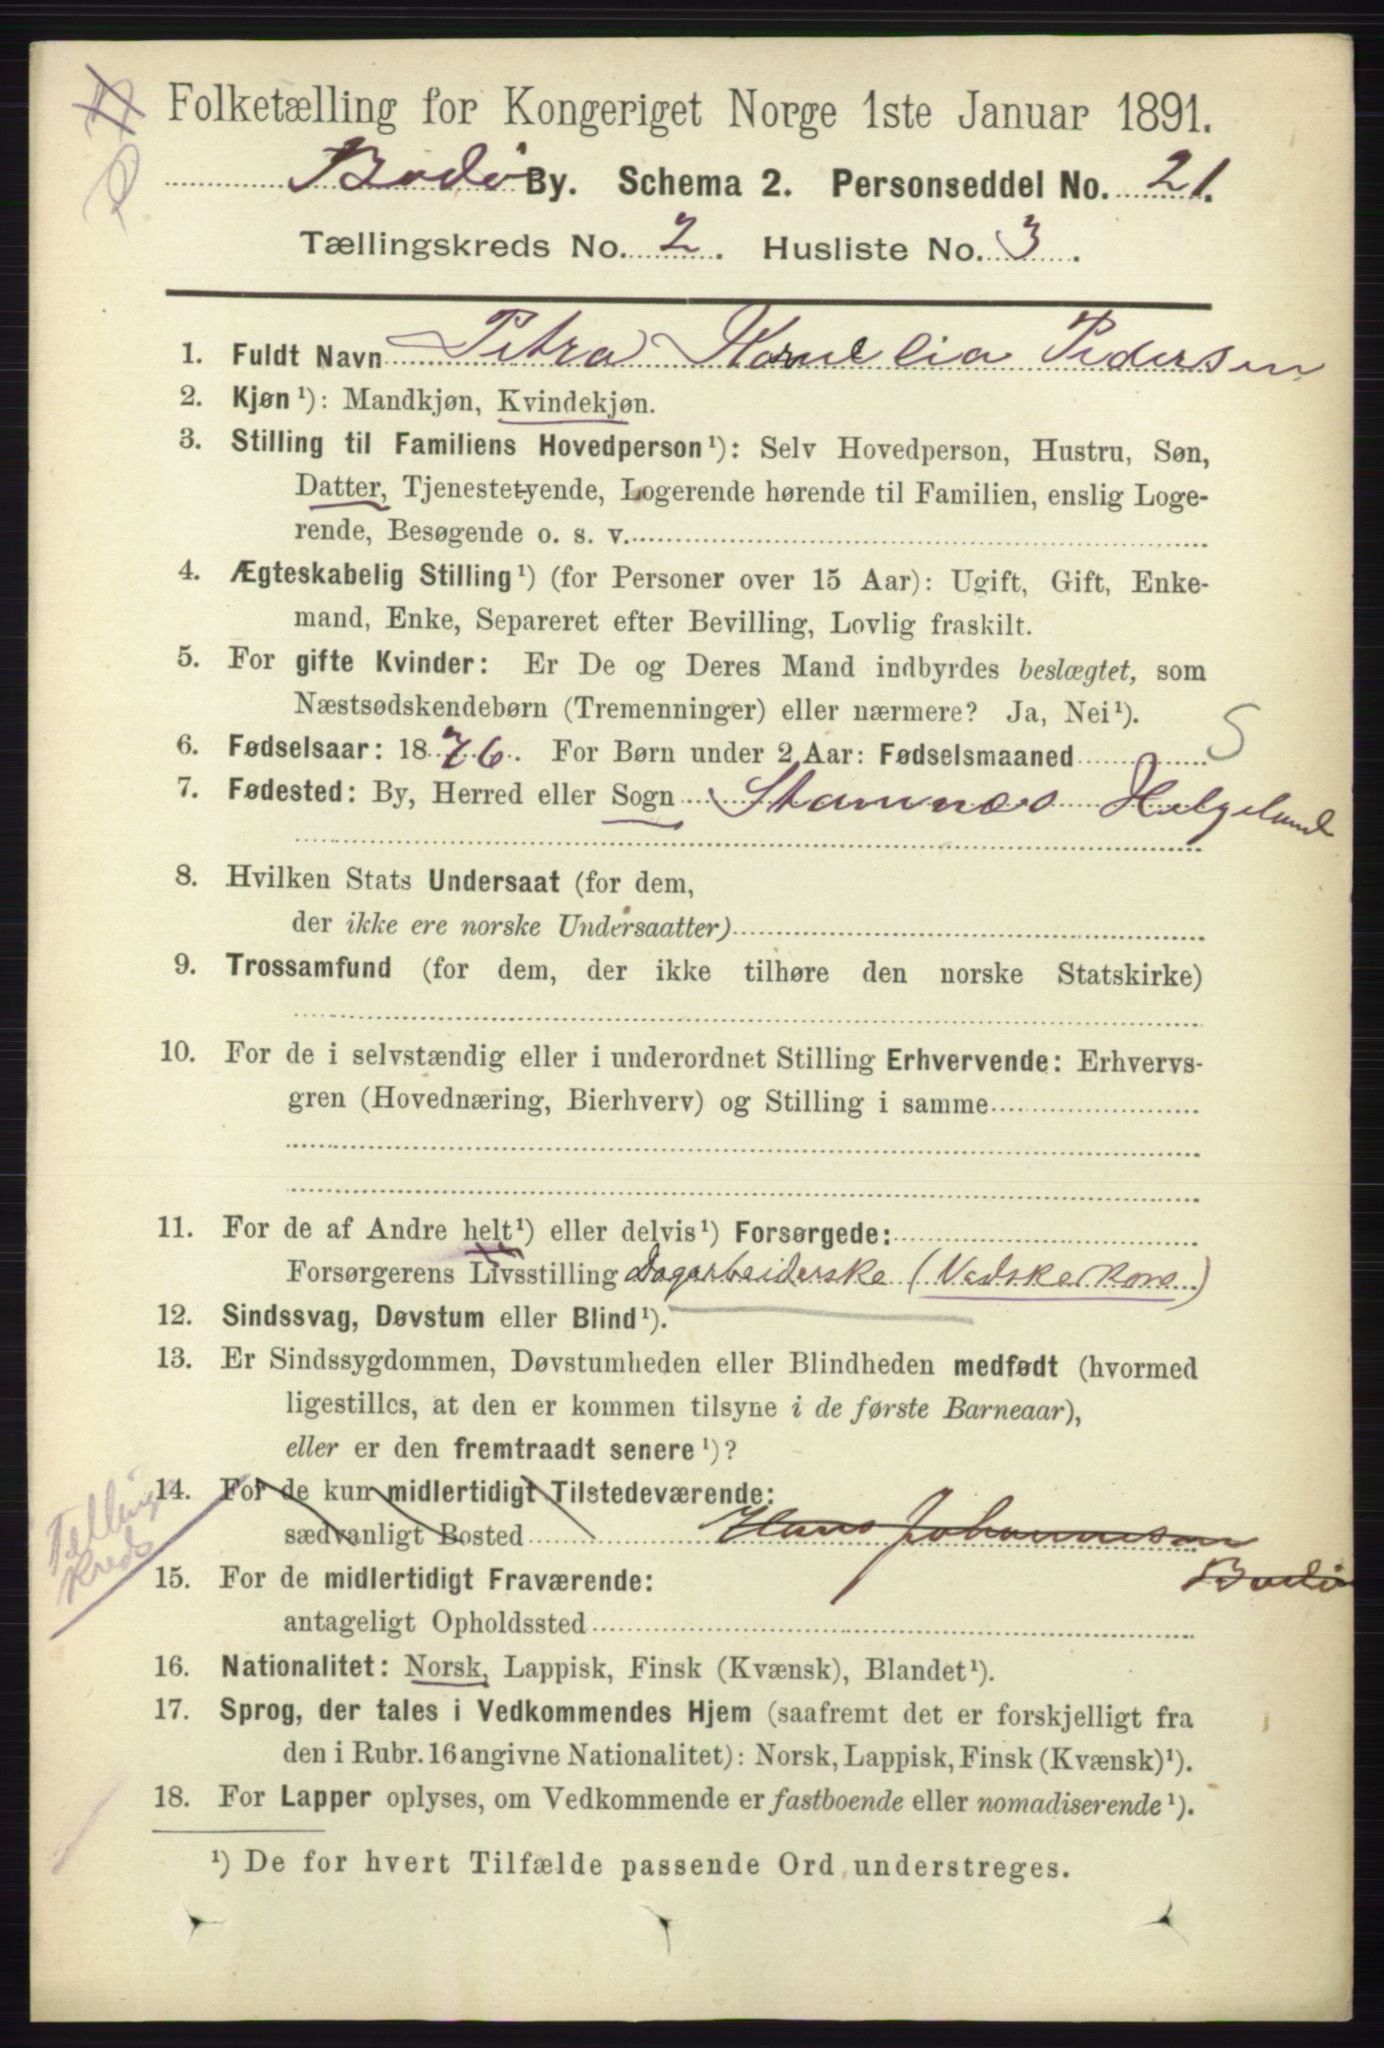 Folketælling for Kongeriget Norge 1ste Januar 1891.
Bodø By. Schema 2. Personseddel No. 21.
Tællingskreds No. 2. Husliste No. 3.
1. Fuldt Navn Petra Kornelia Pedersen
2. Kjøn¹): Mandkjøn, Kvindekjøn.
3. Stilling til Familiens Hovedperson¹): Selv Hovedperson, Hustru, Søn,
Datter, Tjenestetyende, Logerende hørende til Familien, enslig Loge-
rende, Besøgende o. s. v.
4. Ægteskabelig Stilling¹) (for Personer over 15 Aar): Ugift, Gift, Enke-
mand, Enke, Separeret efter Bevilling, Lovlig fraskilt.
5. For gifte Kvinder: Er De og Deres Mand indbyrdes beslægtet, som
Næstsødskendebørn (Tremenninger) eller nærmere? Ja, Nei¹).
6. Fødselsaar: 1876. For Børn under 2 Aar: Fødselsmaaned S
7. Fødested: By, Herred eller Sogn Stamnæs Helgeland
8. Hvilken Stats Undersaat (for dem,
der ikke ere norske Undersaatter)
9. Trossamfund (for dem, der ikke tilhøre den norske Statskirke)
10. For de i selvstændig eller i underordnet Stilling Erhvervende: Erhvervs-
gren (Hovednæring, Bierhverv) og Stilling i samme
11. For de af Andre helt¹) eller delvis¹) Forsørgede:
Forsørgerens Livsstilling Dagarbeiderske (Vadskerkone)
12. Sindssvag, Døvstum eller Blind¹).
13. Er Sindssygdommen, Døvstumheden eller Blindheden medfødt (hvormed
ligestilles, at den er kommen tilsyne i de første Barneaar),
eller er den fremtraadt senere¹)?
14. For de kun midlertidigt Tilstedeværende:
sædvanligt Bosted Hans Johannesen
Bodø
Tælling
kreds
15. For de midlertidigt Fraværende:
antageligt Opholdssted
16. Nationalitet: Norsk, Lappisk, Finsk (Kvænsk), Blandet¹).
17. Sprog, der tales i Vedkommendes Hjem (saafremt det er forskjelligt fra
den i Rubr. 16 angivne Nationalitet): Norsk, Lappisk, Finsk (Kvænsk)¹).
18. For Lapper oplyses, om Vedkommende er fastboende eller nomadiserende¹).
¹) De for hvert Tilfælde passende Ord understreges.